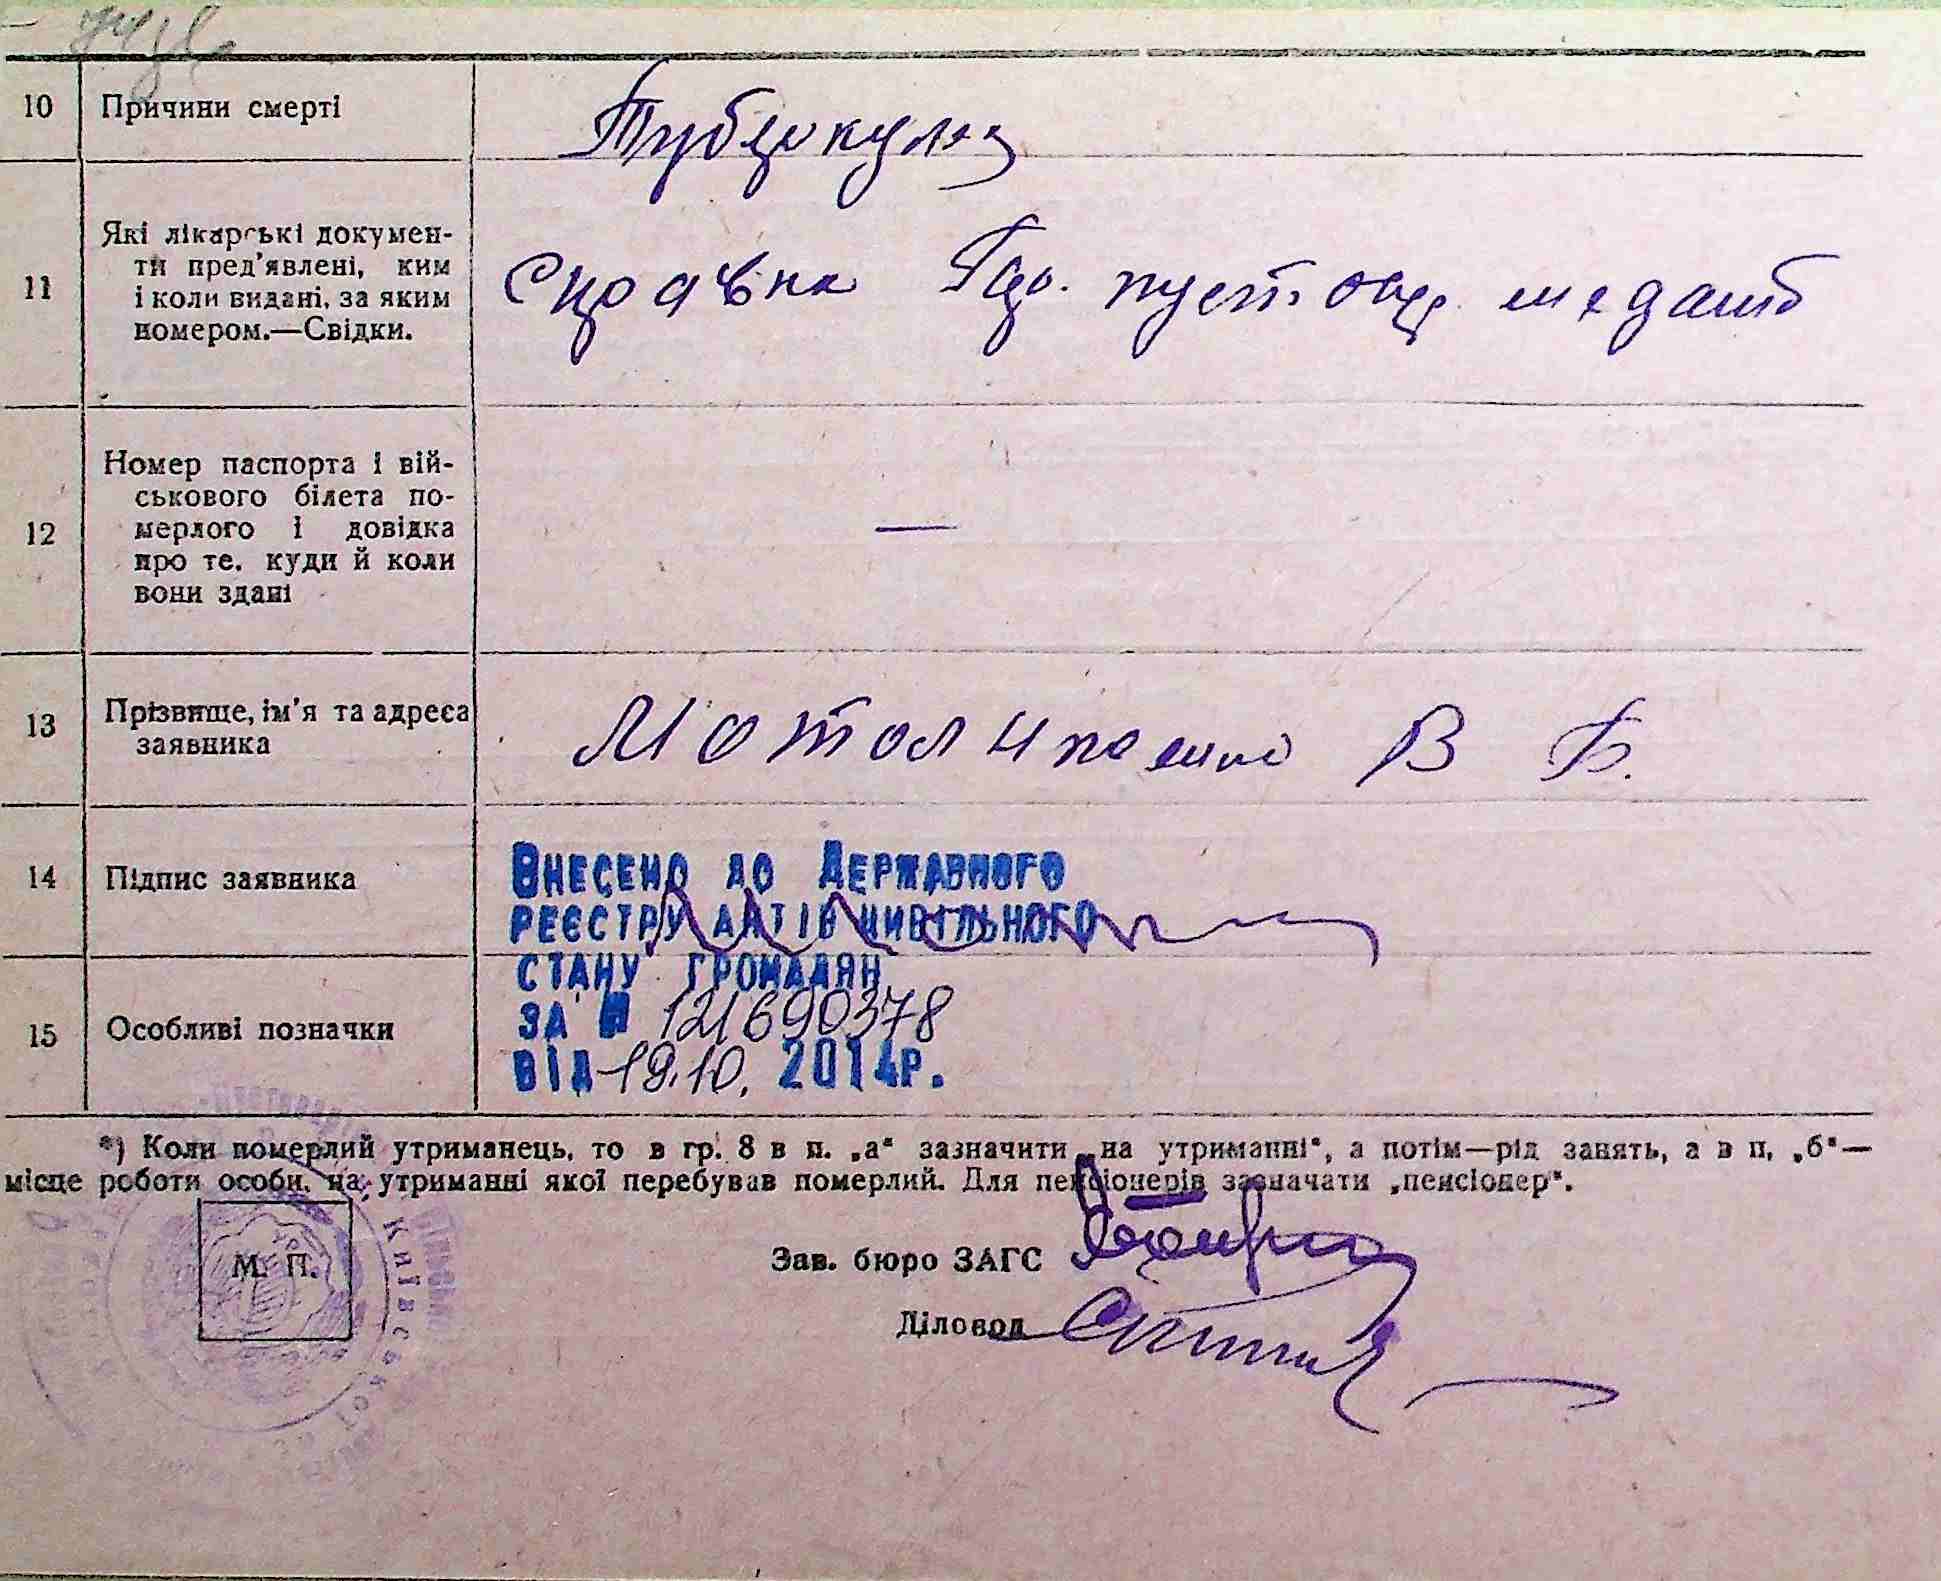 10 Причини смерті
Туберкульоз
11 Які лікарські докумен-
ти пред'явлені, ким
і коли видані, за яким
номером.—Свідки.
Справка
12 Номер паспорта і вій-
ськового білета по-
мерлого і довідка
про те. куди й коли
вони здані
—
13 Прізвище, ім'я та адреса
заявника
В Б.
14 Підпис заявника
15 Особливі позначки
Внесено до Державного
реєстру актів цивільного
стану громадян
за № 121690378
від 19.10. 2014р.
*) Коли померлий утриманець, то в гр. 8 в п. „а“ зазначити „на утриманні“, а потім—рід занять, а в п, „б“—
місце роботи особи, на утриманні якої перебував померлий. Для пенсіонерів зазначати „пенсіонер“.
М. П.
Зав. бюро ЗАГС
Діловод